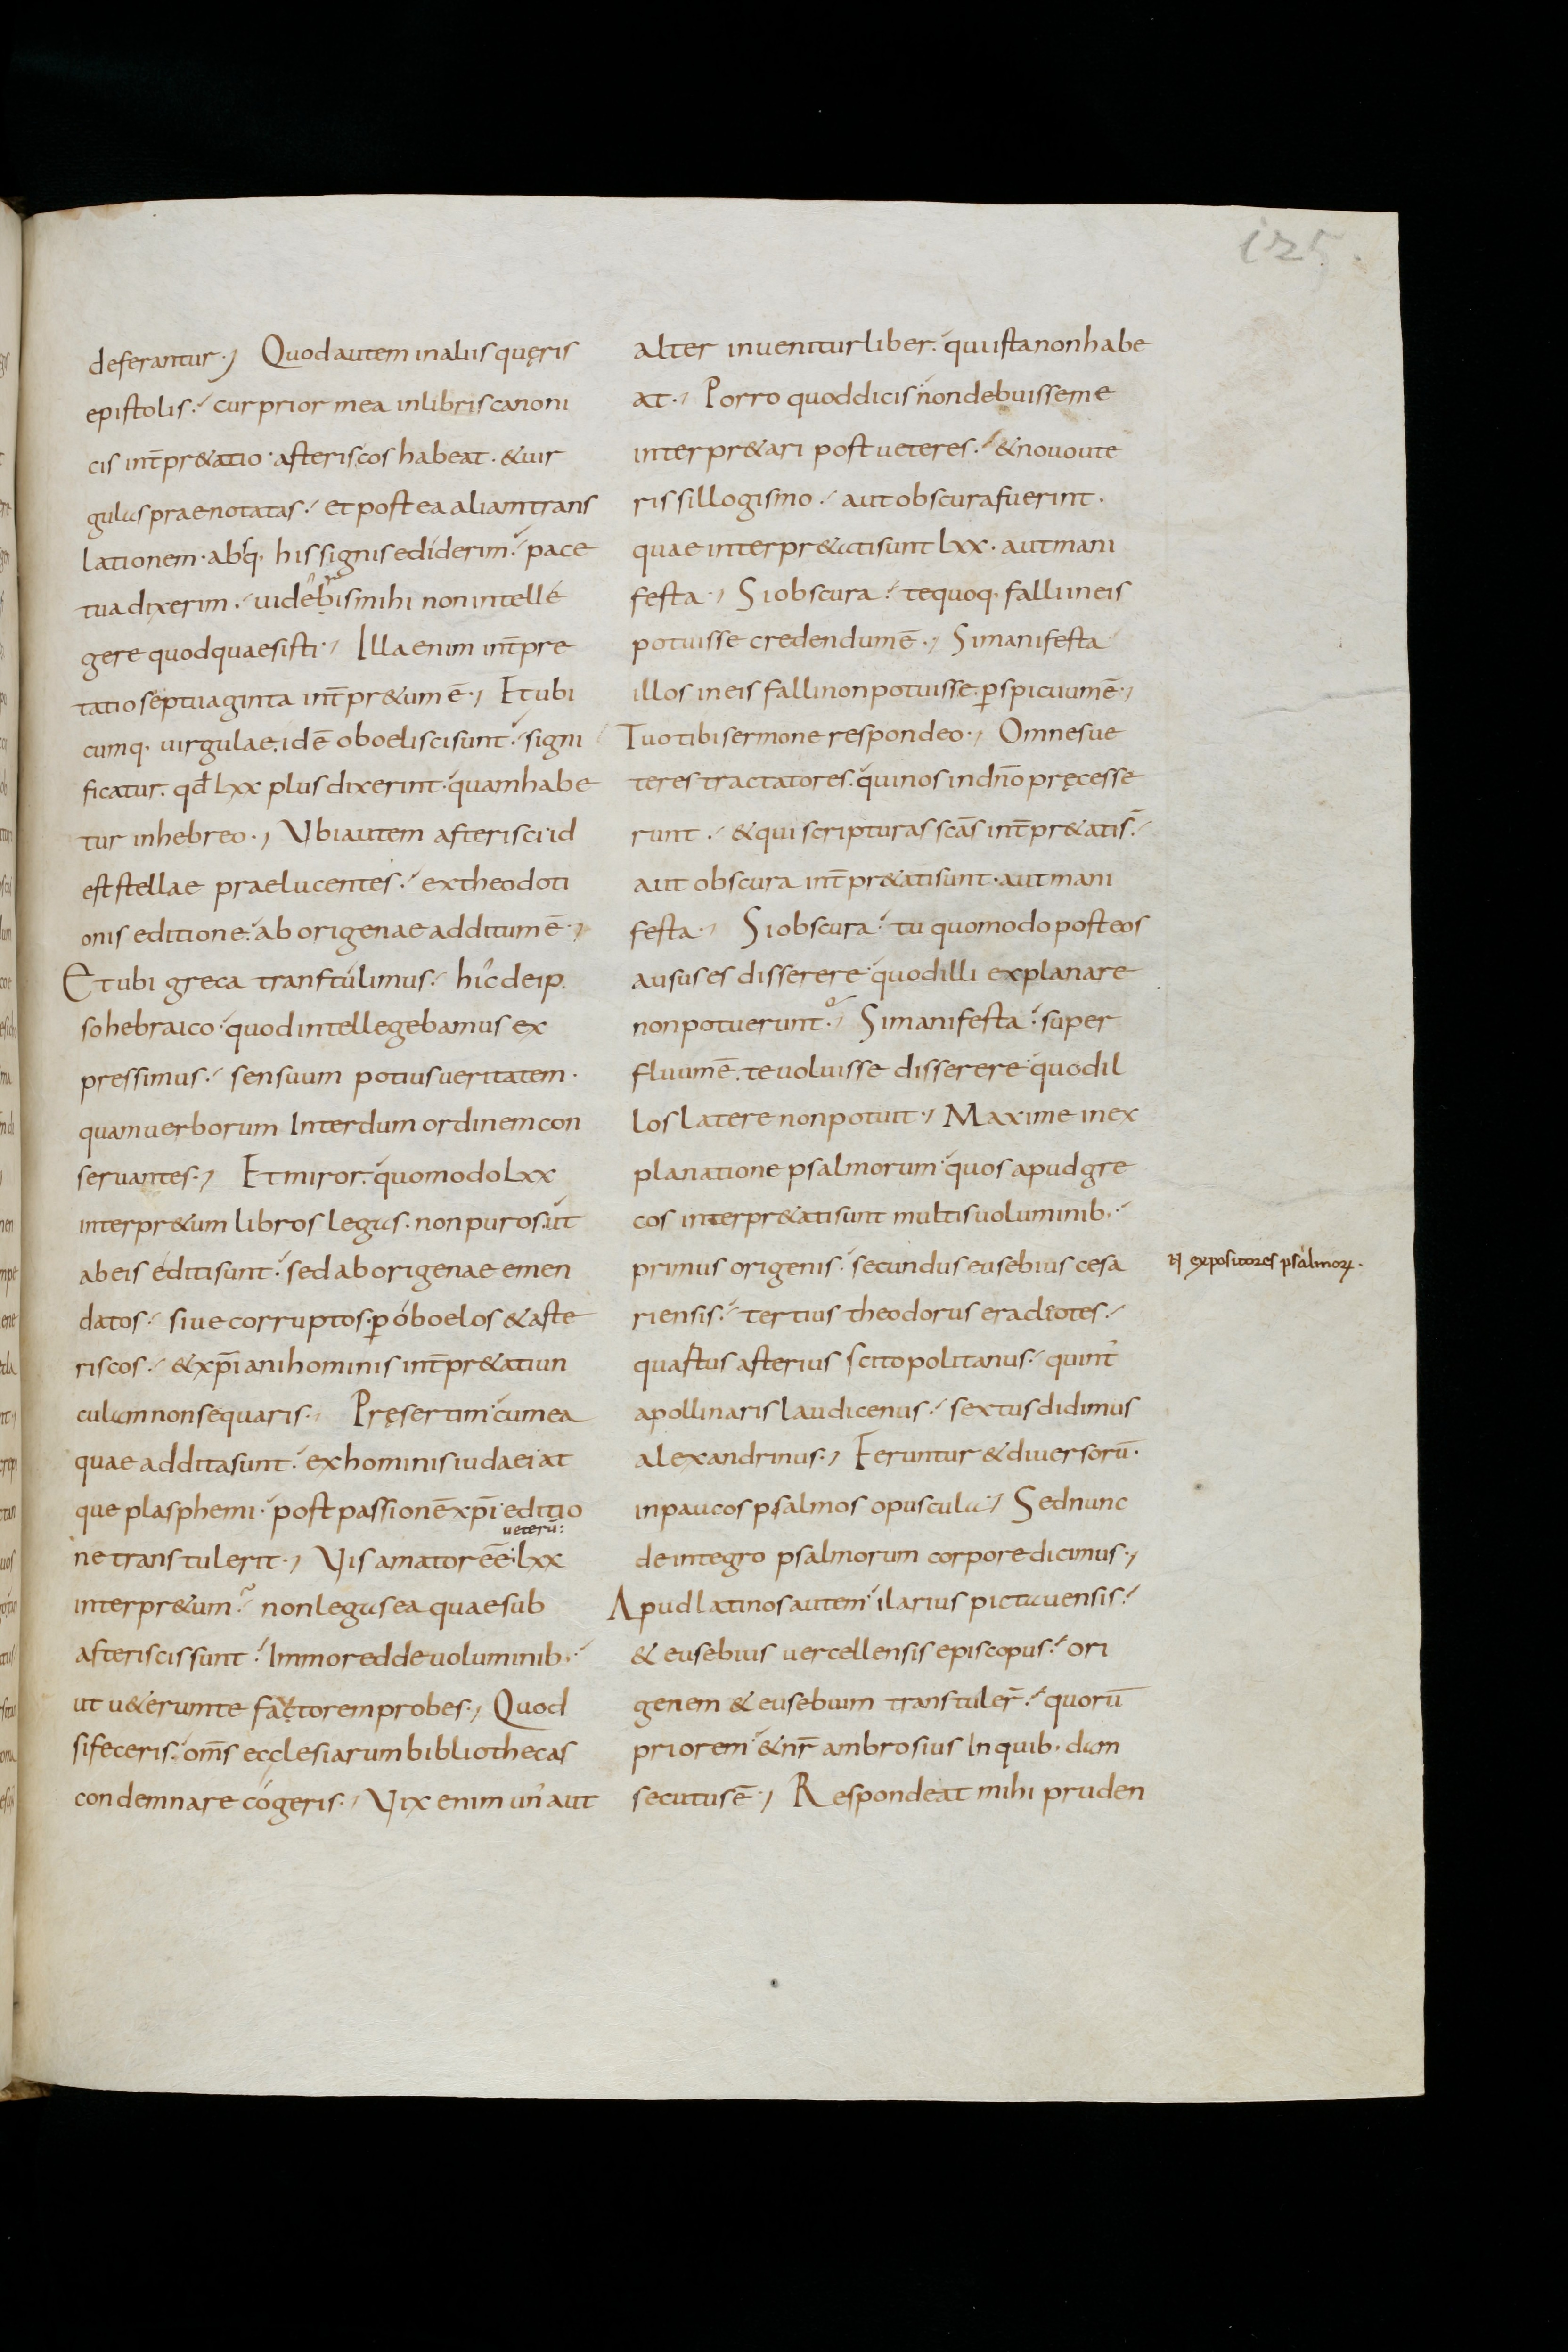 125.
deferantur·, Quod autem in aliis quęris
epistolis· cur prior mea in libris canoni
cis int̄pr&atio· asteriscos habeat· & uir
gulas praenotatas· et postea aliam trans
lationem· absq· his signis ediderim· pace
tua dixerim· uidebis mihi non intelle
gere quod quaesisti·, Illa enim int̄pre
tatio septuaginta int̄pr&um ē·, Et ubi
cumq· uirgulae· id ē oboelisci sunt· signi
ficatur· qđ Lxx plus dixerint· quam habe
tur in hebreo·, Vbi autem asterisci· id
est stellae praelucentes· ex theodoti
onis editione· ab origenae additum ē·,
Et ubi greca transtulimus· hic de ip
so hebraico· quod intellegebamus ex
pressimus· sensuum potius ueritatem·
quam uerborum Interdum ordinem con
seruantes·, Et miror· quomodo Lxx
interpr&um libros legas· non puros· ut
ab eis editi sunt· sed ab origenae emen
datos· siue corruptos· ꝑ oboelos & aste
riscos· & xp̄iani hominis int̄pr&atiun
culam non sequaris·, Pręsertim cum ea
quae addita sunt· ex hominis iudaei at
que plasphemi· post passionē xp̄i· editio
ueterū:
ne transtulerit·, Vis amator eē Lxx
interpr&um· non legas ea quae sub
asteriscis sunt· Immo redde uoluminib·
ut u&erum te factorem probes·, Quod
si feceris· om̄s ecclesiarum bibliothecas
condemnare cogeris·, Vix enim un' aut
alter inuenitur liber· qui ista non habe
at·, Porro quod dicis non debuisse me
interpr&ari post ueteres· & nouo ute
ris sillogismo· aut obscura fuerint·
quae interpr&ati sunt Lxx· aut mani
festa·, Si obscura· te quoq· falli in eis
potuisse credendum ē·, Si manifesta
illos in eis falli non potuisse· ꝑspicuum ē·,
Tuo tibi sermone respondeo·, Omnes ue
teres tractatores· qui nos in dn̄o pręcesse
runt· & qui scripturas scās int̄pr&atis̄·
aut obscura int̄pr&ati sunt· aut mani
festa·, Si obscura· tu quomodo post eos
ausus es disserere quod illi explanare
non potuerunt·, Si manifesta· super
fluum ē· te uoluisse disserere quod il
los latere non potuit·, Maxime in ex
planatione psalmorum· quos apud gre
cos interpr&ati sunt multis uoluminib·
primus origenis· secundus eusebius cesa
riensis· tertius theodorus eracleotes·
quartus asterius scitopolitanus· quint'
apollinaris laudicenus· sextus didimus
alexandrinus·, Feruntur & diuersorū·
in paucos psalmos opuscula·, Sed nunc
de integro psalmorum corpore dicimus·,
Apud latinos autem ilarius pictauensis·
& eusebius uercellensis episcopus· ori
genem & eusebium transtuler̄· quorū
priorem & nr̄ ambrosius In quib· dam
secutus ē·, Respondeat mihi pruden
expositores psalmoꝝ·